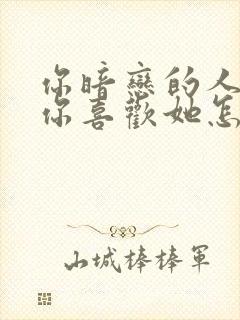 你暗戀的人
你喜歡她怎
山城棒棒軍